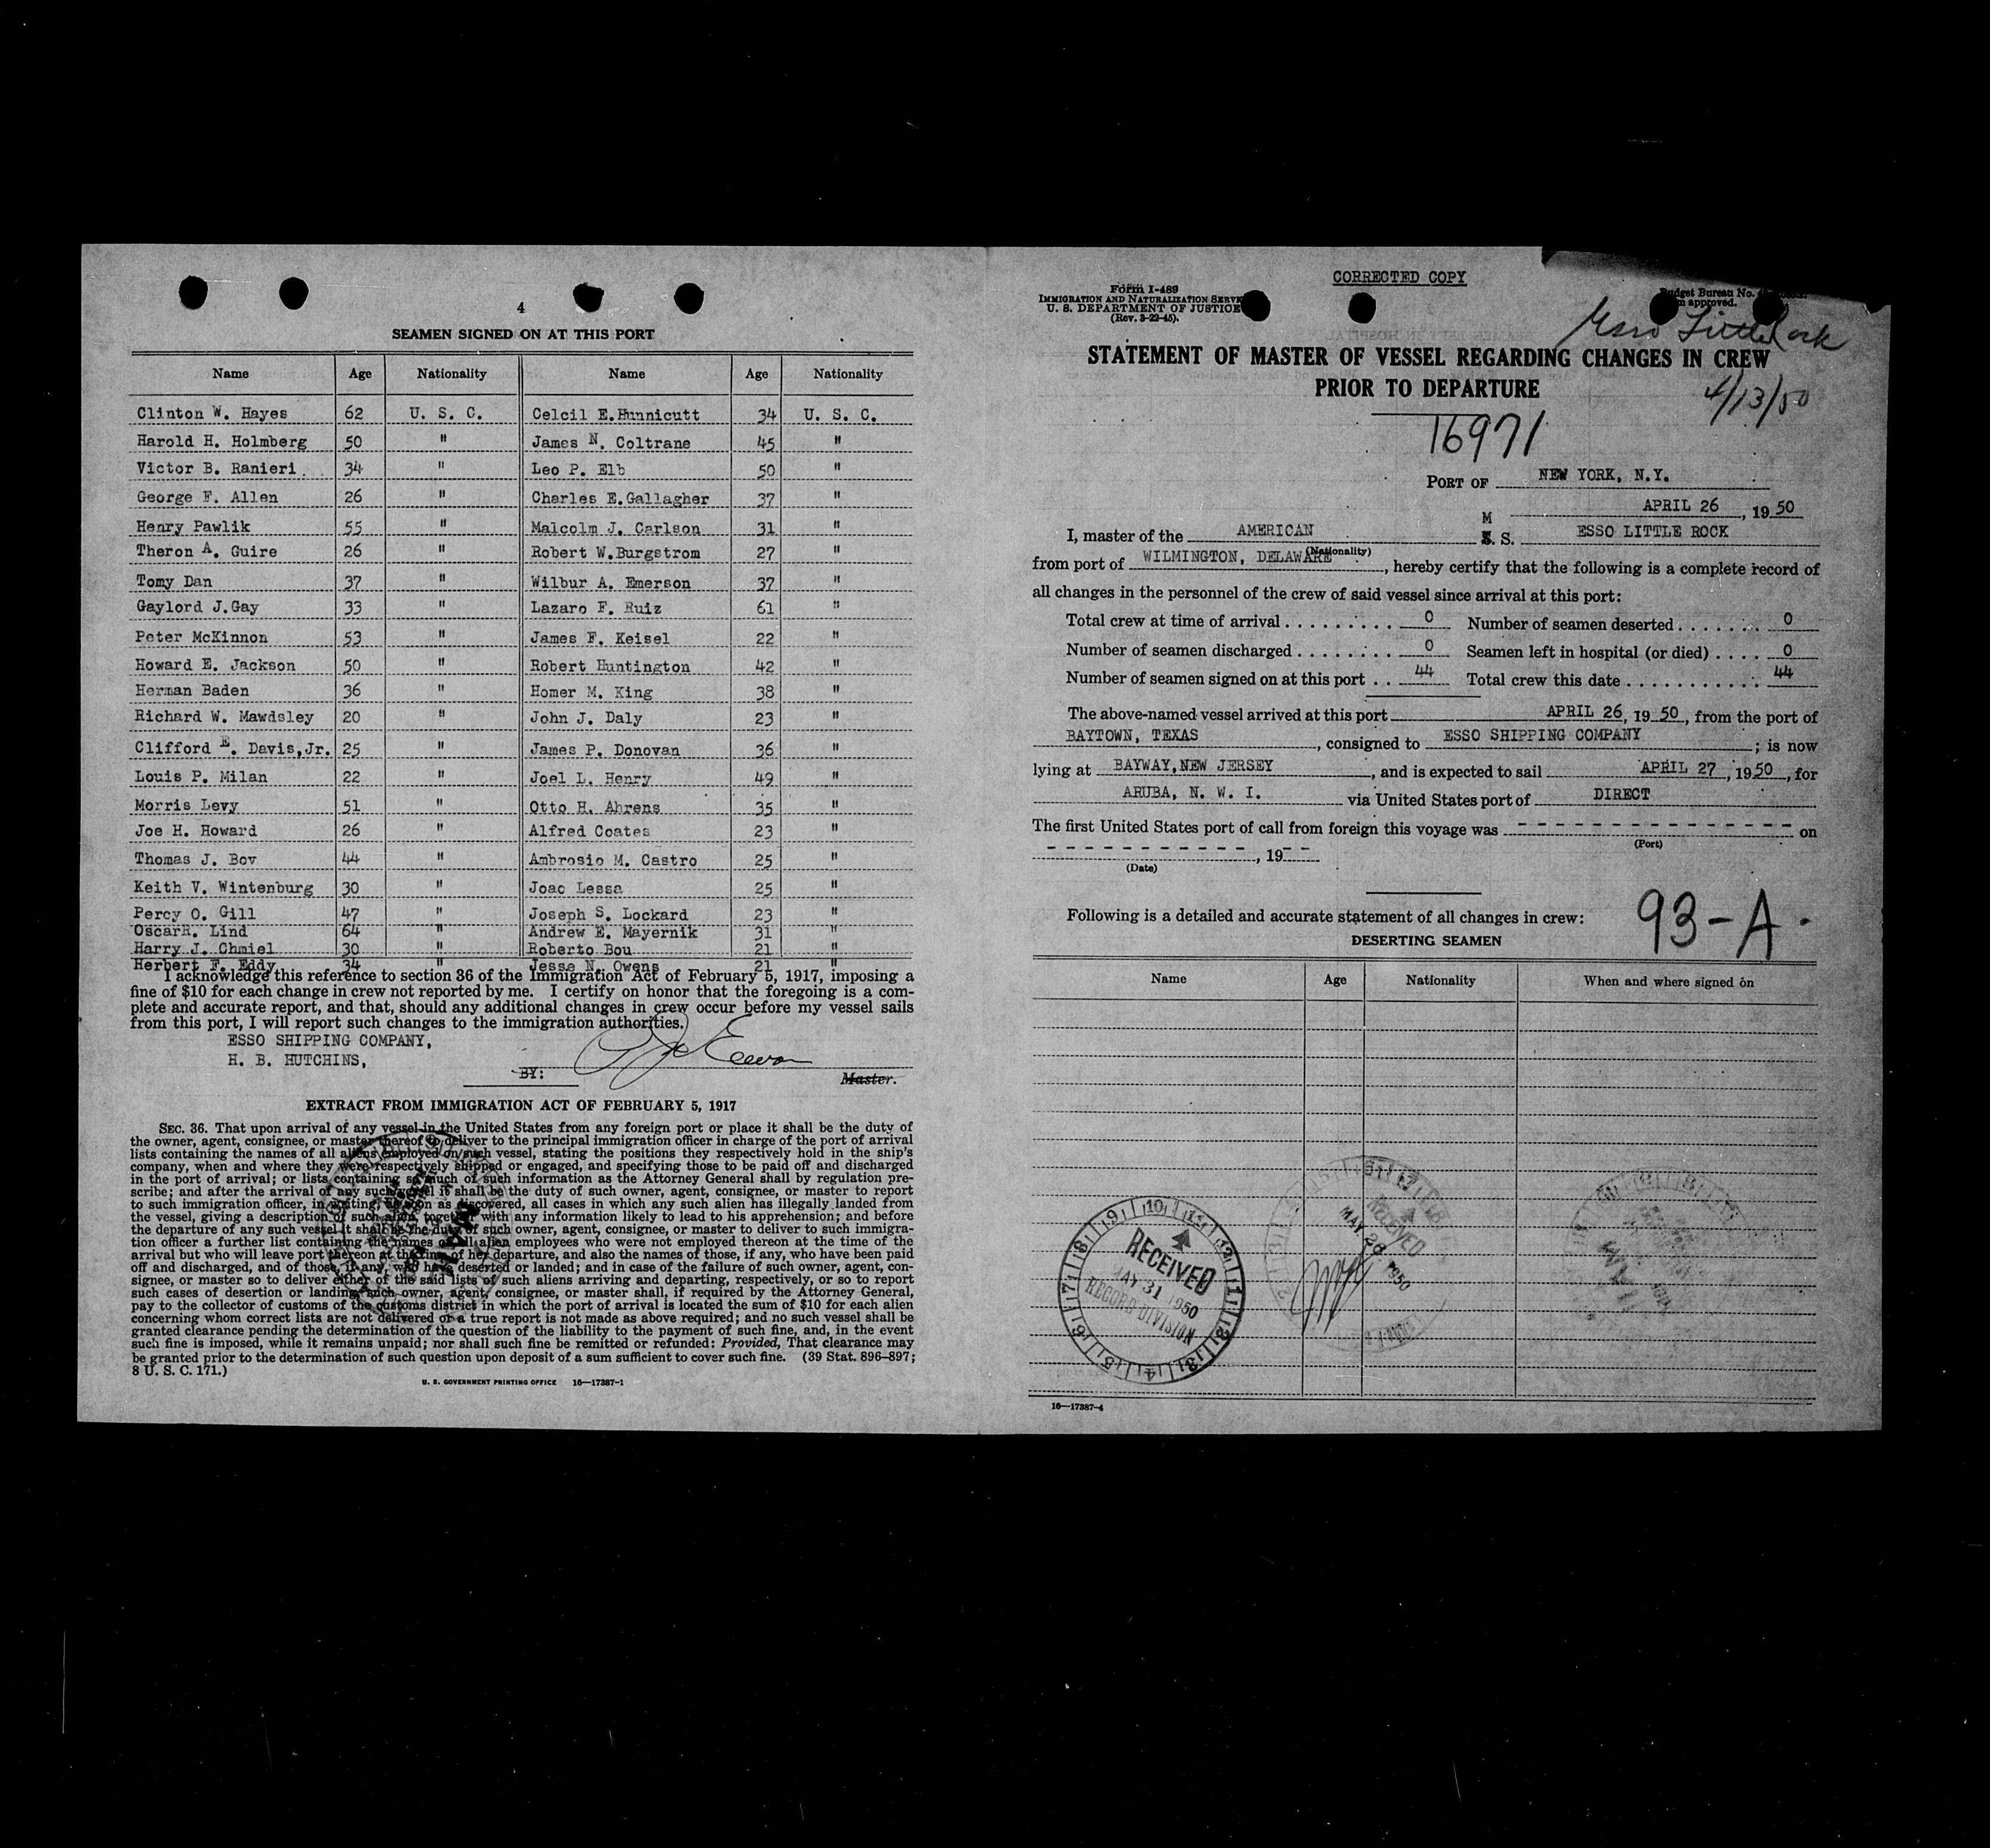 4
SEAMEN SIGNED ON AT THIS PORT
Name Age Nationality Name Age Nationality
Clinton W. Hayes 62 U. S. C. Celcil E.Hunnicutt 34 U. S. C.
Harold H. Holmberg 50 " James N. Coltrane 45 "
Victor B. Ranieri 34 " Leo P. Elb 50 "
George F. Allen 26 " Charles E.Gallagher 37 "
Henry Pawlik 55 " Malcolm J. Carlson 31 "
Theron A. Guire 26 " Robert W.Burgstrom 27 "
Tomy Dan 37 " Wilbur A. Emerson 37 "
Gaylord J.Gay 33 " Lazaro F. Ruiz 61 "
Peter McKinnon 53 " James F. Keisel 22 "
Howard E. Jackson 50 " Robert Huntington 42 "
Herman Baden 36 " Homer M. King 38 "
Richard W. Mawdsley 20 " John J. Daly 23 "
Clifford E. Davis,Jr. 25 " James P. Donovan 36 "
Louis P. Milan 22 " Joel L. Henry 49 "
Morris Levy 51 " Otto H. Ahrens 35 "
Joe H. Howard 26 " Alfred Coates 23 "
Thomas J. Bov 44 " Ambrosio M. Castro 25 "
Keith V. Wintenburg 30 " Joao Lessa 25 "
Percy O. Gill 47 " Joseph S. Lockard 23 "
OscarR. Lind 64 " Andrew E. Mayernik 31 "
Harry J. Chmiel 30 " Roberto Bou 21 "
Herbert F. Eddy 34 " Jesse N. Owens 21 "
I acknowledge this reference to section 36 of the Immigration Act of February 5, 1917, imposing a
fine of $10 for each change in crew not reported by me. I certify on honor that the foregoing is a com-
plete and accurate report, and that, should any additional changes in crew occur before my vessel sails
from this port, I will report such changes to the immigration authorities.
ESSO SHIPPING COMPANY,
H. B. HUTCHINS,
BY: Master.
EXTRACT FROM IMMIGRATION ACT OF FEBRUARY 5, 1917
SEC. 36. That upon arrival of any vessel in the United States from any foreign port or place it shall be the duty of
the owner, agent, consignee, or master thereof to deliver to the principal immigration officer in charge of the port of arrival
lists containing the names of all aliens employed on such vessel, stating the positions they respectively hold in the ship's
company, when and where they were respectively shipped or engaged, and specifying those to be paid off and discharged
in the port of arrival; or lists containing so much of such information as the Attorney General shall by regulation pre-
scribe; and after the arrival of any such vessel it shall be the duty of such owner, agent, consignee, or master to report
to such immigration officer, in writing, as soon as discovered, all cases in which any such alien has illegally landed from
the vessel, giving a description of such alien, together with any information likely to lead to his apprehension; and before
the departure of any such vessel it shall be the duty of such owner, agent, consignee, or master to deliver to such immigra-
tion officer a further list containing the names of all alien employees who were not employed thereon at the time of the
arrival but who will leave port thereon at the time of her departure, and also the names of those, if any, who have been paid
off and discharged, and of those, if any, who have deserted or landed; and in case of the failure of such owner, agent, con-
signee, or master so to deliver either of the said lists of such aliens arriving and departing, respectively, or so to report
such cases of desertion or landing, such owner, agent, consignee, or master shall, if required by the Attorney General,
pay to the collector of customs of the customs district in which the port of arrival is located the sum of $10 for each alien
concerning whom correct lists are not delivered or a true report is not made as above required; and no such vessel shall be
granted clearance pending the determination of the question of the liability to the payment of such fine, and, in the event
such fine is imposed, while it remains unpaid; nor shall such fine be remitted or refunded: Provided, That clearance may
be granted prior to the determination of such question upon deposit of a sum sufficient to cover such fine. (39 Stat. 896-897;
8 U. S. C. 171.)
U. S. GOVERNMENT PRINTING OFFICE 16—17387-1
CORRECTED COPY
Form I-489
IMMIGRATION AND NATURALIZATION
U. S. DEPARTMENT OF JUSTICE
(Rev. 3-22-45).
Budget Bureau No.
approved.
Esso Little Rock
STATEMENT OF MASTER OF VESSEL REGARDING CHANGES IN CREW
PRIOR TO DEPARTURE
4/13/50
16971
PORT OF NEW YORK, N.Y.
APRIL 26, 1950
I, master of the AMERICAN M S. S. ESSO LITTLE ROCK
(Nationality)
from port of WILMINGTON, DELAWARE, hereby certify that the following is a complete record of
all changes in the personnel of the crew of said vessel since arrival at this port:
Total crew at time of arrival 0 Number of seamen deserted 0
Number of seamen discharged 0 Seamen left in hospital (or died) 0
Number of seamen signed on at this port 44 Total crew this date 44
The above-named vessel arrived at this port APRIL 26, 1950, from the port of
BAYTOWN, TEXAS, consigned to ESSO SHIPPING COMPANY; is now
lying at BAYWAY,NEW JERSEY, and is expected to sail APRIL 27, 1950, for
ARUBA, N. W. I. via United States port of DIRECT
The first United States port of call from foreign this voyage was - - - - - - - - - - - - - - - - on
(Port)
- - - - - - - - - - -, 19- -
(Date)
Following is a detailed and accurate statement of all changes in crew: 93-A.
DESERTING SEAMEN
Name Age Nationality When and where signed on
RECEIVED
MAY 31 1950
RECORD DIVISION
RECEIVED
MAY 26 1950
16—17387-4